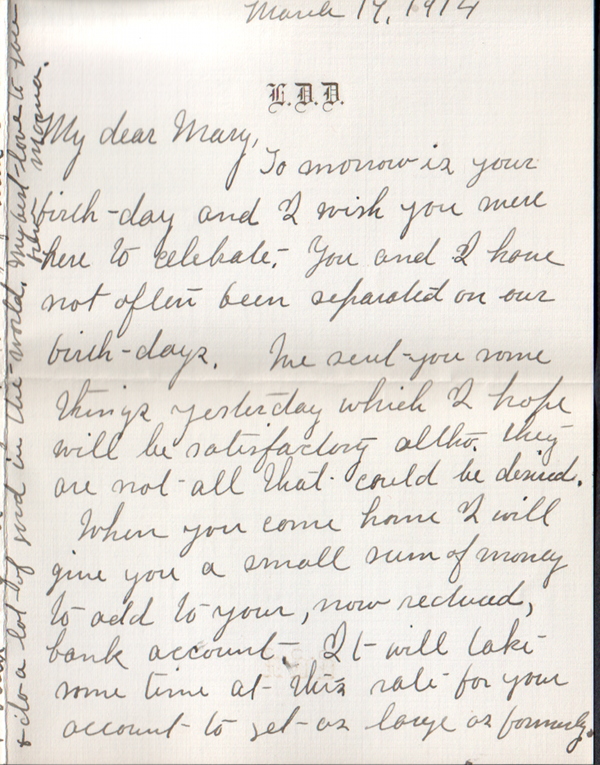 March 19, 1914
L.D.D.
My dear Mary,
To morrow is your
birth-day and I wish you were
here to celebrate. You and I have
not often been separated on our
birth-days. We sent you some
things yesterday which I hope
will be satisfactory altho. they
are not all that could be desired.
When you come home I will
give you a small sum of money
to add to your, now reduced,
bank account. It will take
some time at this rate for your
account to get as large as formerly.
& do a lot of good in the world. My best love to you
Mama.